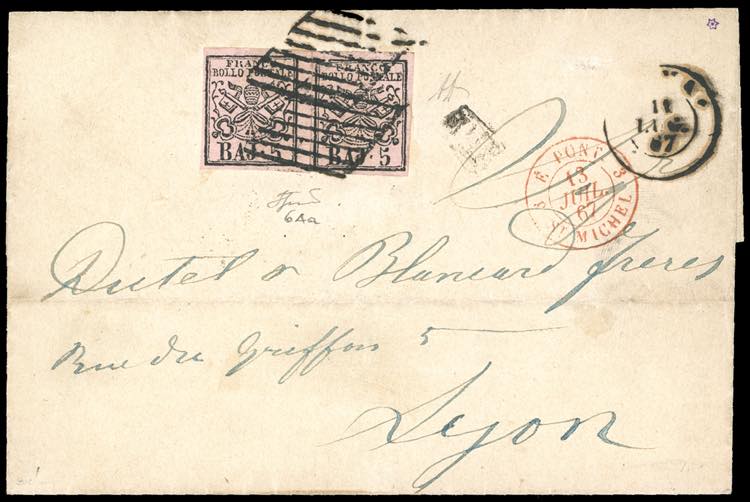 FRANCO
BOLLO POSTALE
BAJ. 5
FRANCO
BOLLO POSTALE
BAJ. 5
11
LUG.
67
E. PONT
13
JUIL.
67
ST MICHEL
3
3
64a
Dutel & Blancard frères
Rue du Griffon 5
Lyon